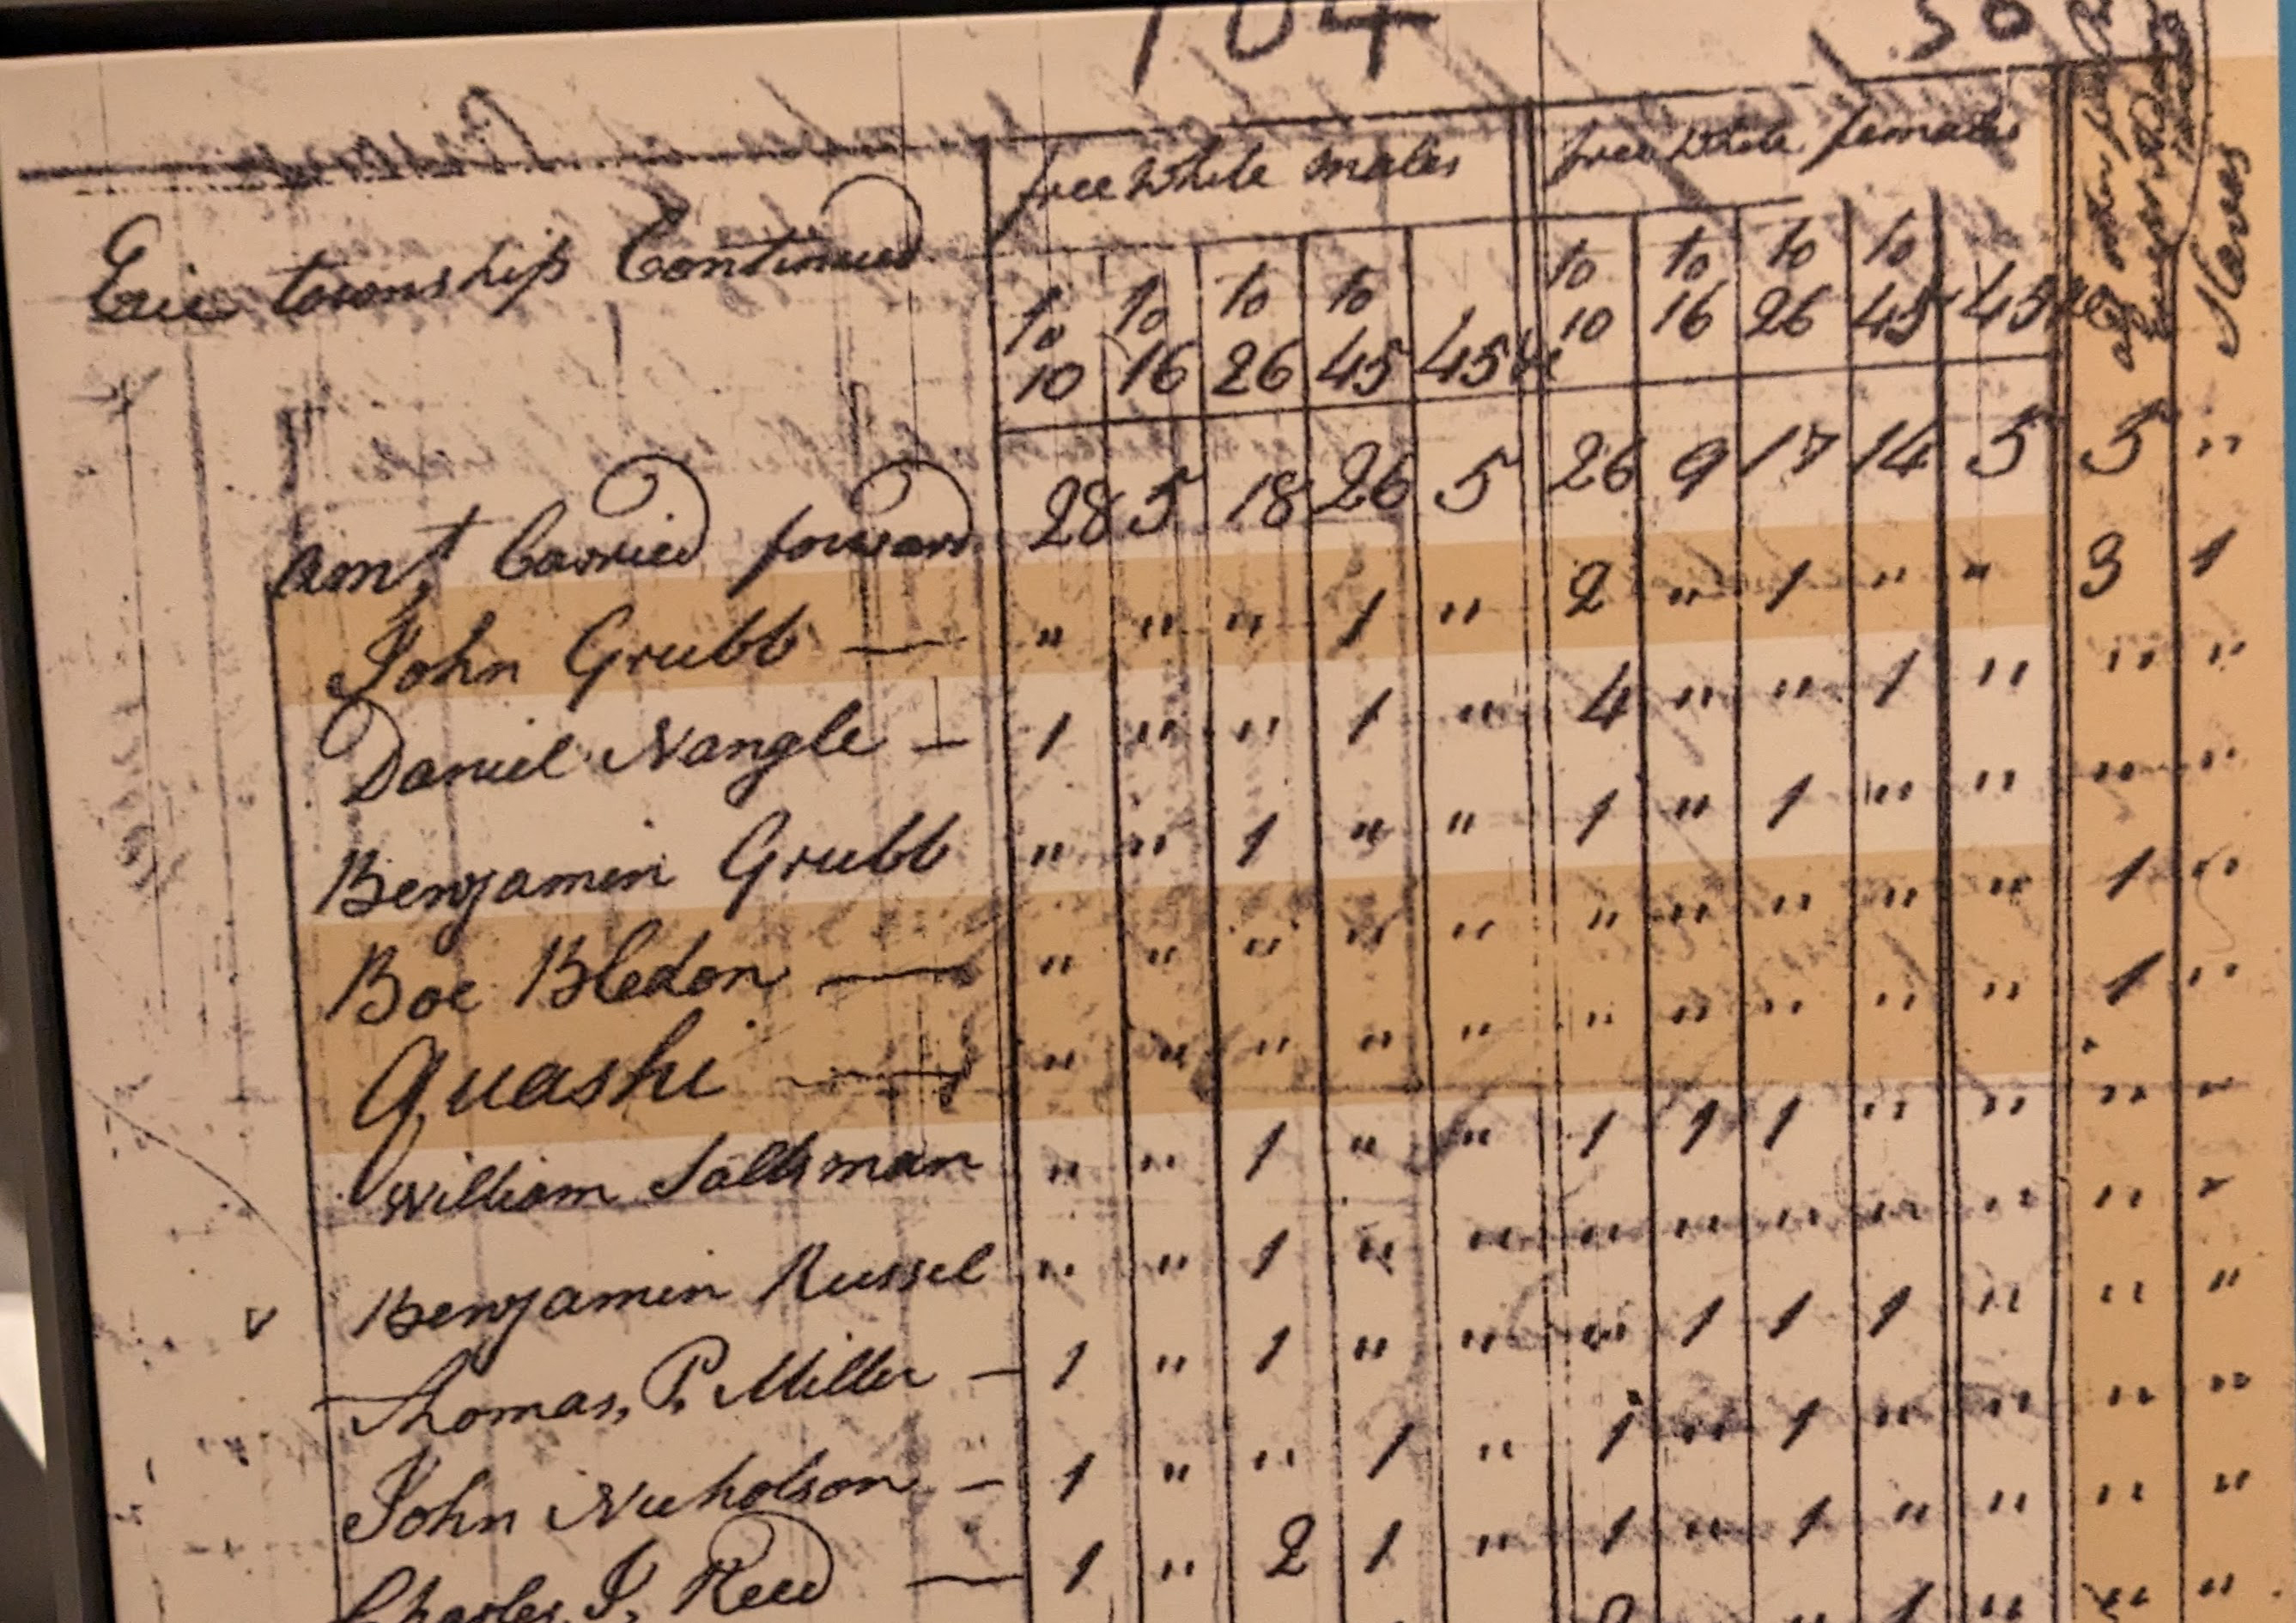 104
free white males free white females
Slaves
Erie township Continued
to 10 to 16 to 26 to 45 45 &c to 10 to 16 to 26 to 45 45 &c
amt Carried forward 28 5 18 26 5 26 9 17 14 5 5 "
John Grubb — " " " 1 " 2 " 1 " " 3 1
Daniel Nangle — 1 " " 1 " 4 " " 1 " " "
Benjamin Grubb " " 1 " " 1 " 1 " " " "
Boe Bledon — " " " " " " " " " " 1 "
Quashi — " " " " " " " " " " 1 "
William Saltsman " " 1 " " 1 1 1 " " " "
Benjamin Russel " " 1 " " " " " " " " "
Thomas, P, Miller — 1 " 1 " " " 1 1 1 " " "
John Nicholson — 1 " " 1 " 1 " 1 " " " "
Charles, J, Reed — 1 " 2 1 " 1 " 1 " " " "